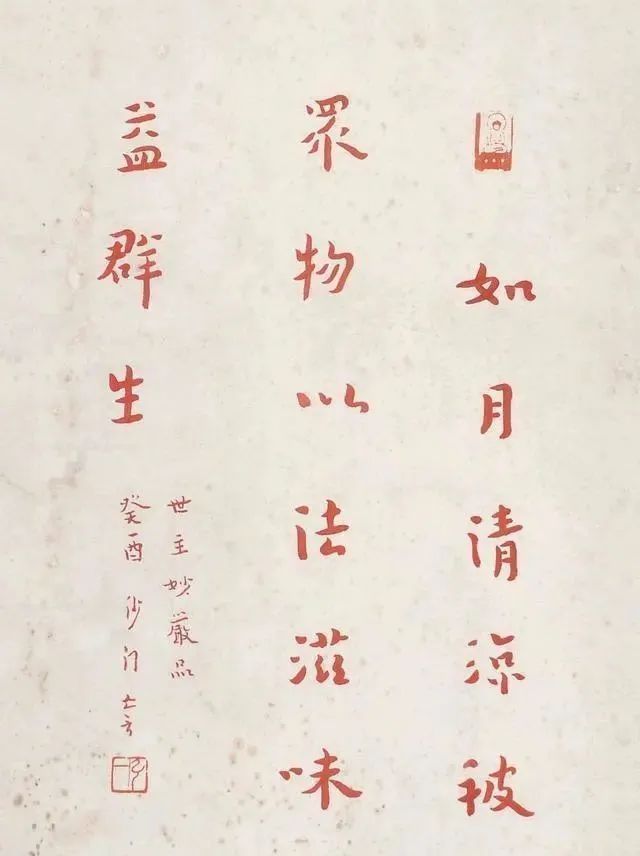 如月清凉被
眾物以法滋味
益群生
世主妙嚴品
癸酉沙门